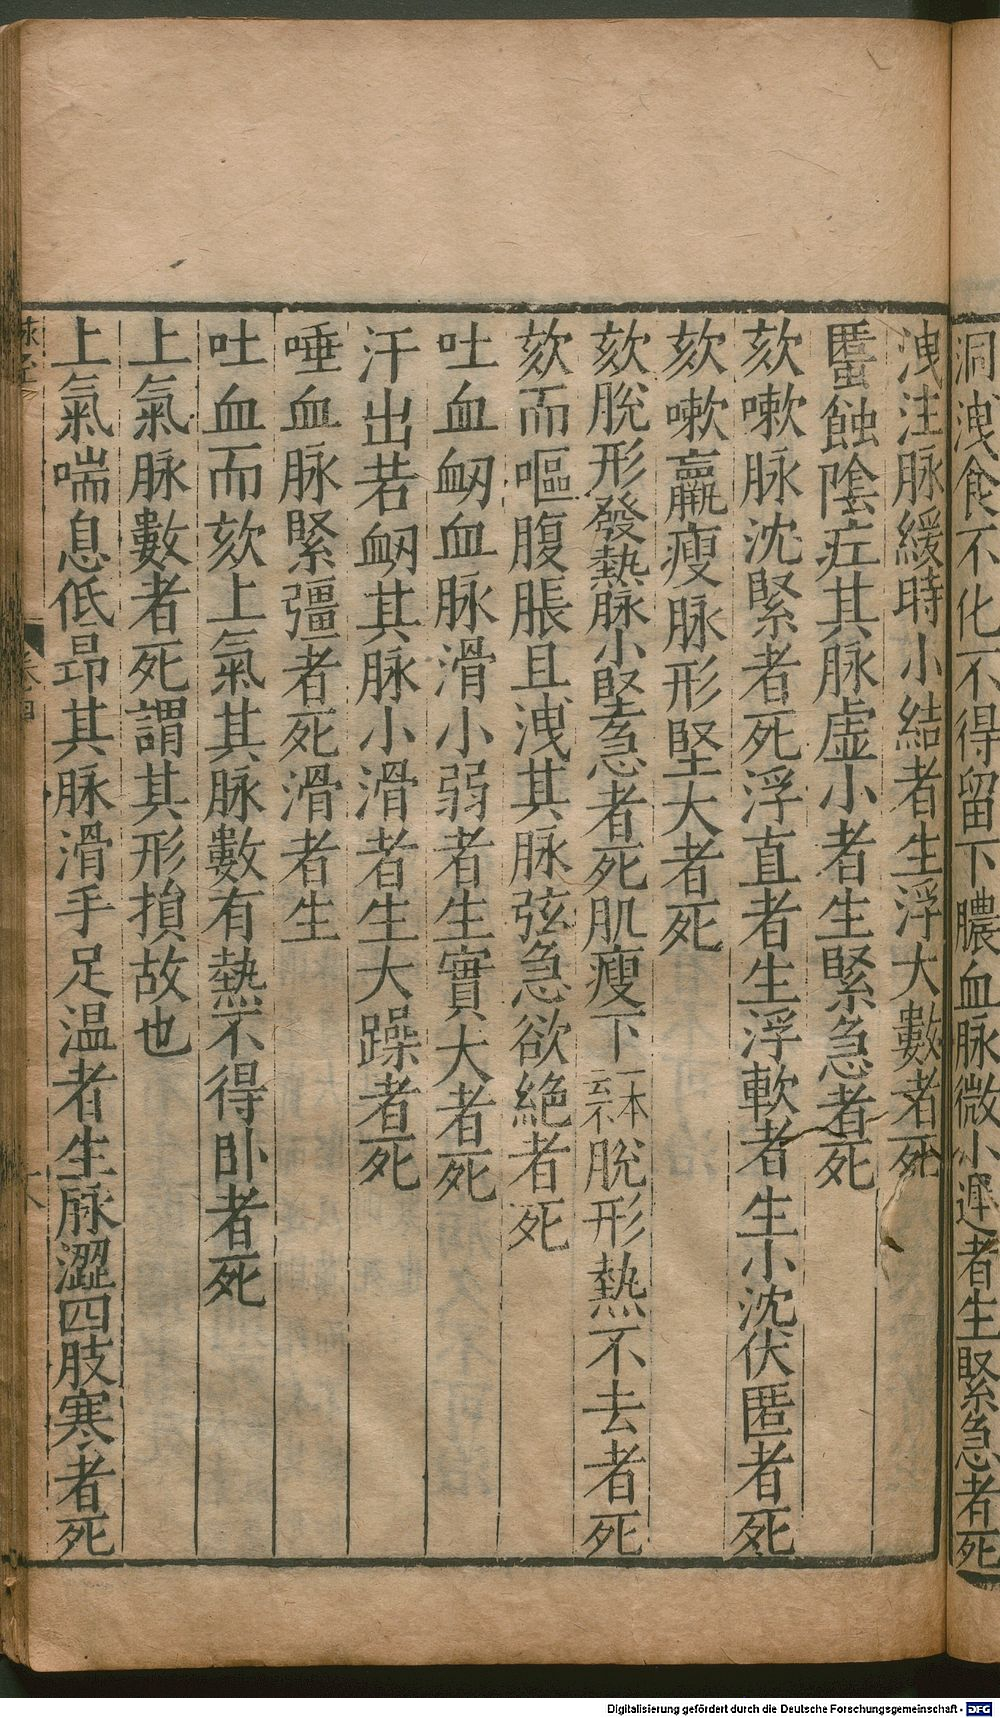 洞洩食不化不得留下膿血脉微小遲者生緊急者死
洩注脉緩時小結者生浮大數者死
䘌蝕陰疘其脉虛小者生緊急者死
欬嗽脉沈緊者死浮直者生浮軟者生小沈伏匿者死
欬嗽羸瘦脉形堅大者死
欬脫形發熱脉小堅急者死肌瘦下一本云不脫形熱不去者死
欬而嘔腹脹且洩其脉弦急欲絶者死
吐血衂血脉滑小弱者生實大者死
汗出若衂其脉小滑者生大躁者死
唾血脉緊彊者死滑者生
吐血而欬上氣其脉數有熱不得卧者死
上氣脉數者死謂其形損故也
上氣喘息低昂其脉滑手足溫者生脉澀四肢寒者死
卷四
Digitalisierung gefördert durch die Deutsche Forschungsgemeinschaft - DFG